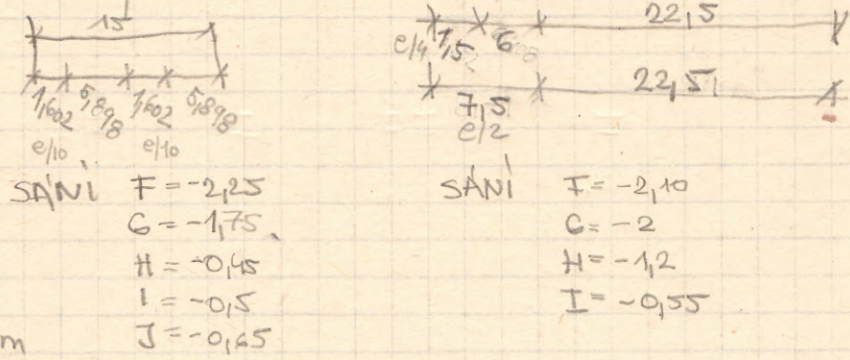 15
1,602 5,898 1,602 5,898
e/10 e/10
SÁNÍ F = -2,25
G = -1,75
H = -0,45
I = -0,5
J = -0,65
m
22,5
e/4 1,5 6
22,5
7,5
e/2
SÁNÍ F = -2,10
G = -2
H = -1,2
I = -0,55